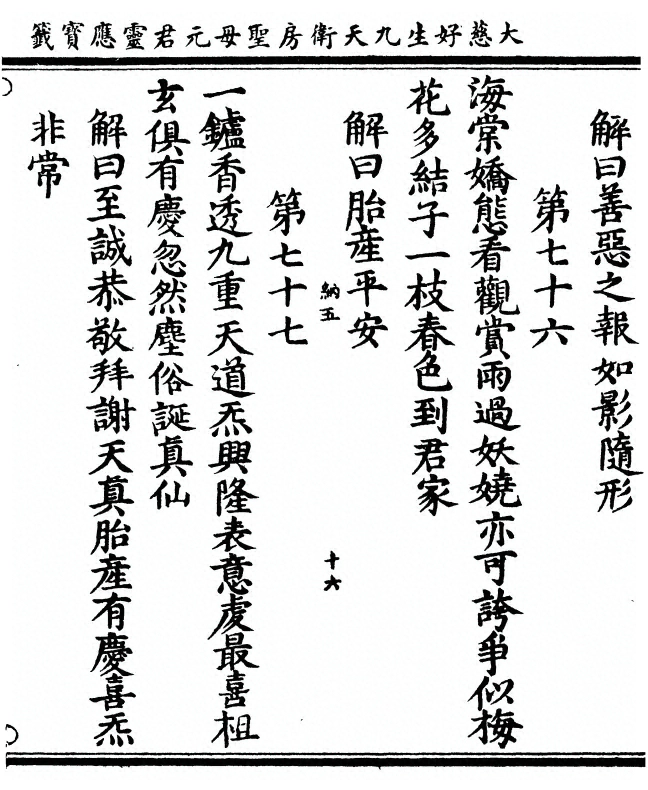 大慈好生九天衛房聖母元君靈應寶籤
解曰善惡之報如影隨形
第七十六
海棠嬌態看觀賞雨過妖嬈亦可誇爭似梅
花多結子一枝春色到君家
解曰胎產平安
納五
十六
第七十七
一鑪香透九重天道炁興隆表意虔最喜祖
玄俱有慶忽然塵俗誕真仙
解曰至誠恭敬拜謝天真胎產有慶喜炁
非常